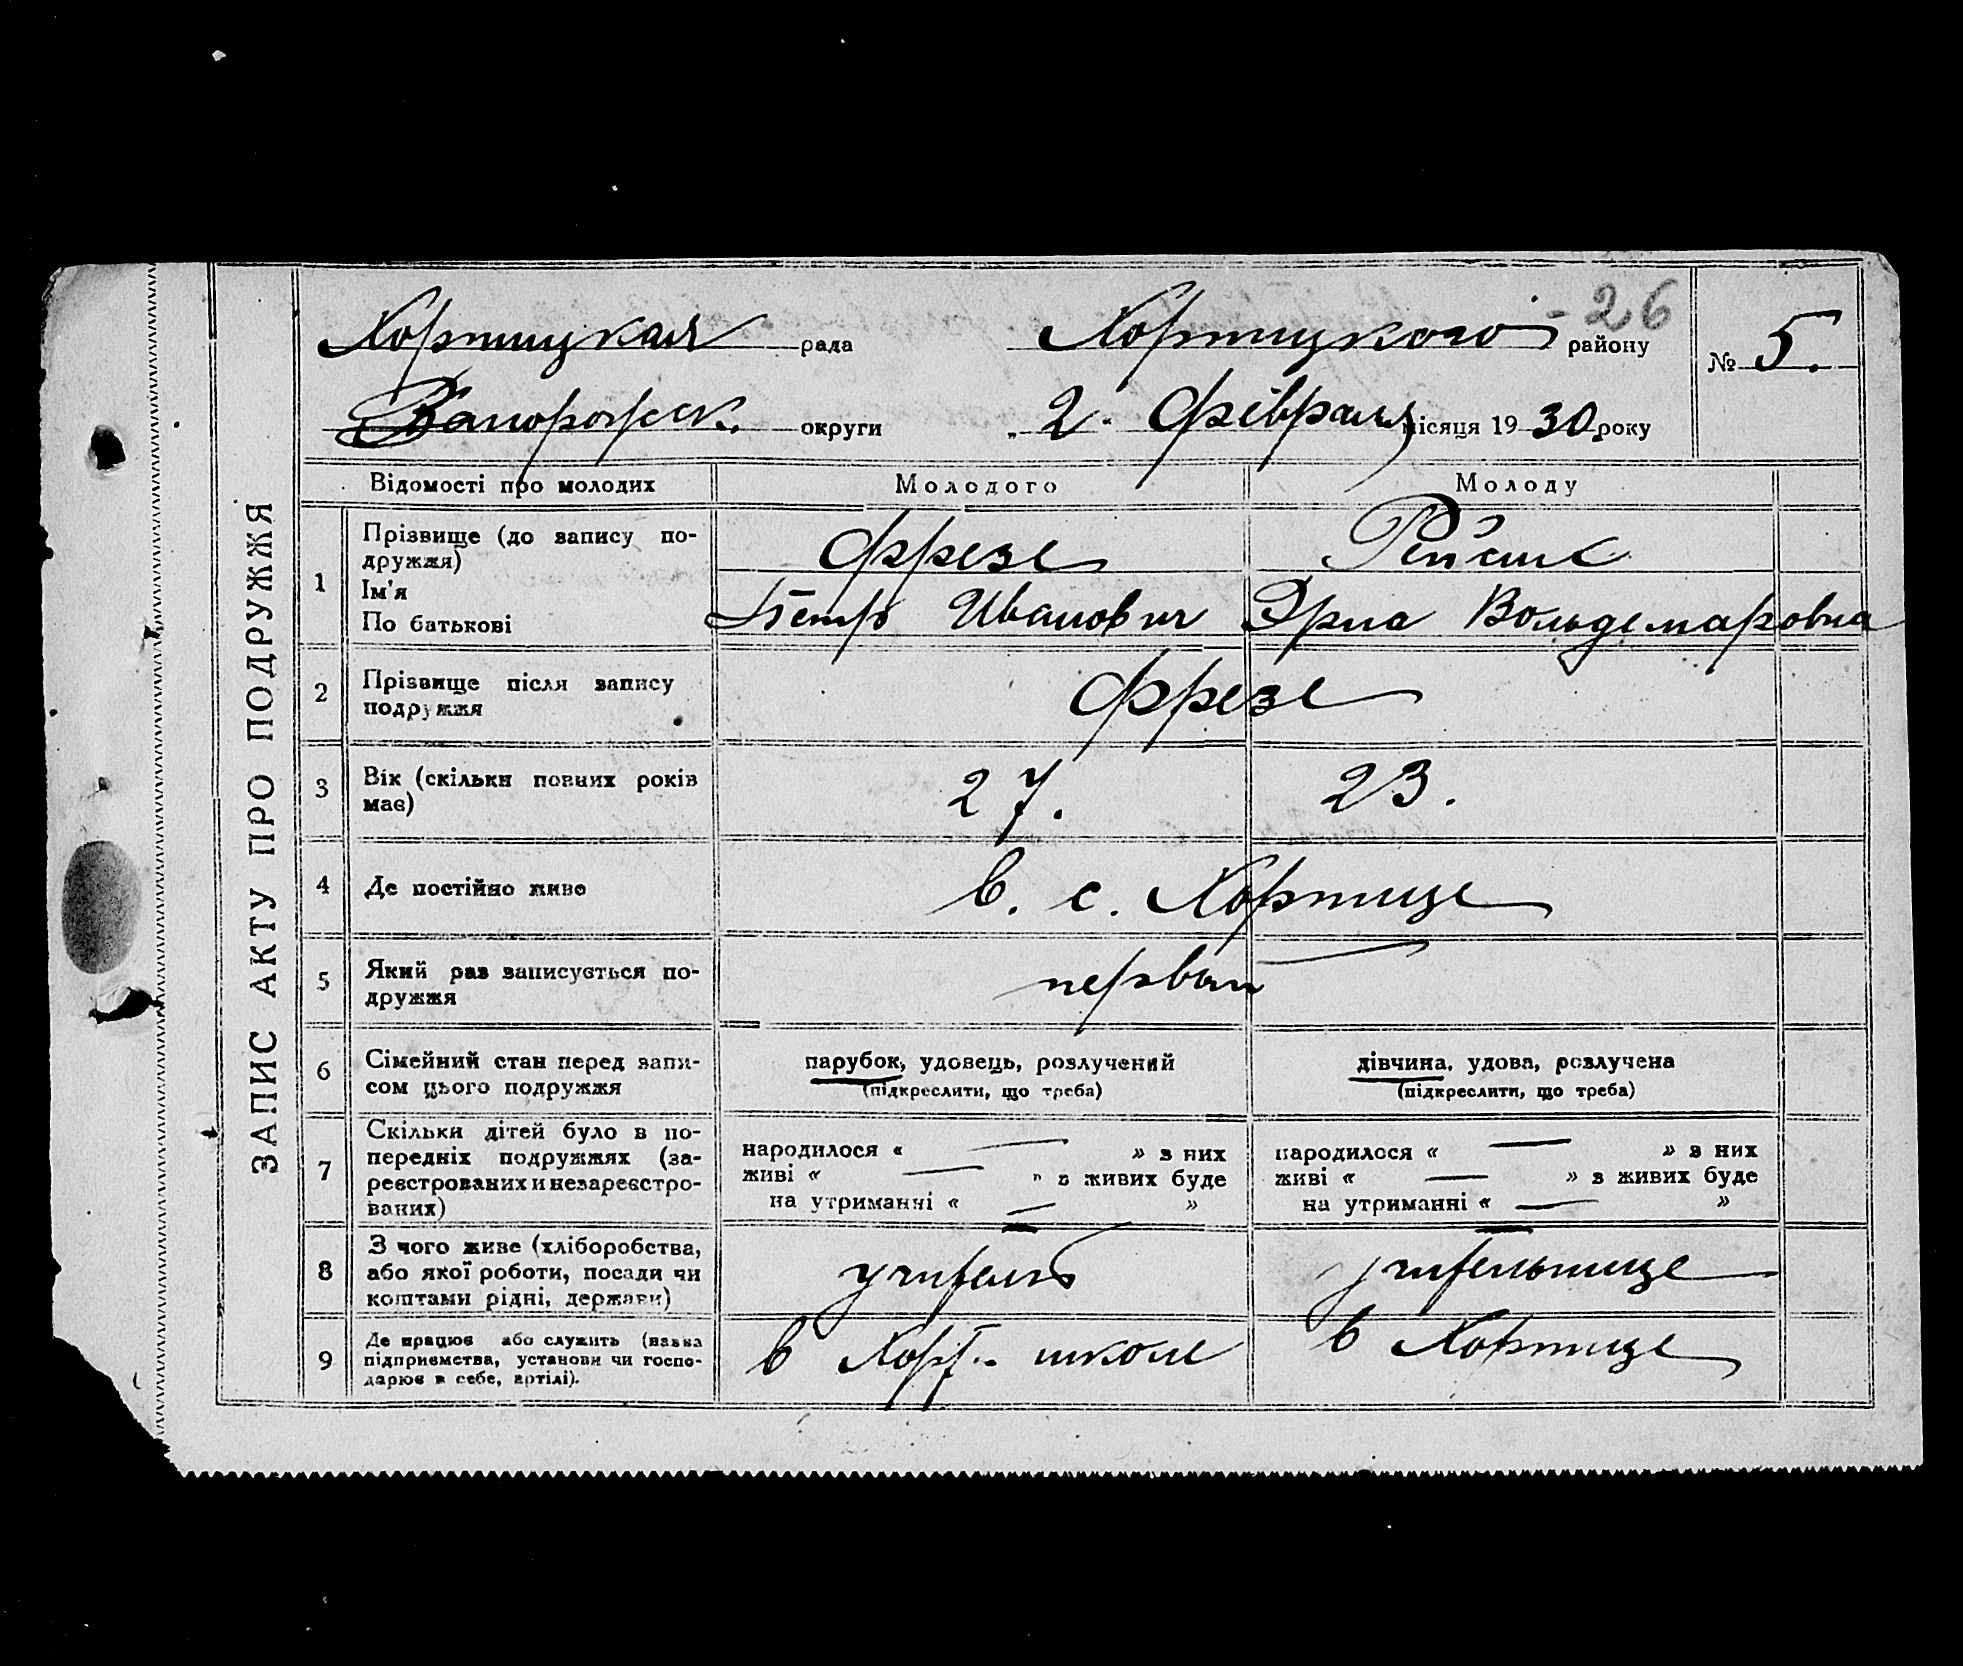 ЗАПИС АКТУ ПРО ПОДРУЖЖЯ
-26
Хортицкая рада Хортицкого району № 5.
Запорожск. округи „ 2 " Февраля місяця 1930 року
Відомості про молодих Молодого Молоду
1 Прізвище (до запису по-
дружжя) Фрезе
Ім'я
По батькові Петр Иванович Эрна Вольдемаровна
2 Прізвище після запису
подружжя Фрезе
3 Вік (скільки повних років
має) 27. 23.
4 Де постійно живе в. с. Хортице
5 Який раз записується по-
дружжя первый
6 Сімейний стан перед запи-
сом цього подружжя
парубок, удовець, розлучений
(підкреслити, що треба)
дівчина, удова, розлучена
(підкреслити, що треба)
7 Скільки дітей було в по-
передніх подружжях (за-
реєстрованих и незареєстро-
ваних)
народилося « — » з них
живі « — » з живих буде
на утриманні « — »
народилося « — » з них
живі « — » з живих буде
на утриманні « — »
8 З чого живе (хліборобства,
або якої роботи, посади чи
коштами рідні, держави)
учитель учительнице
9 Де працює або служить (назва
підприємства, установи чи госпо-
дарює в себе, артілі).
в Хорт. школе в Хортице